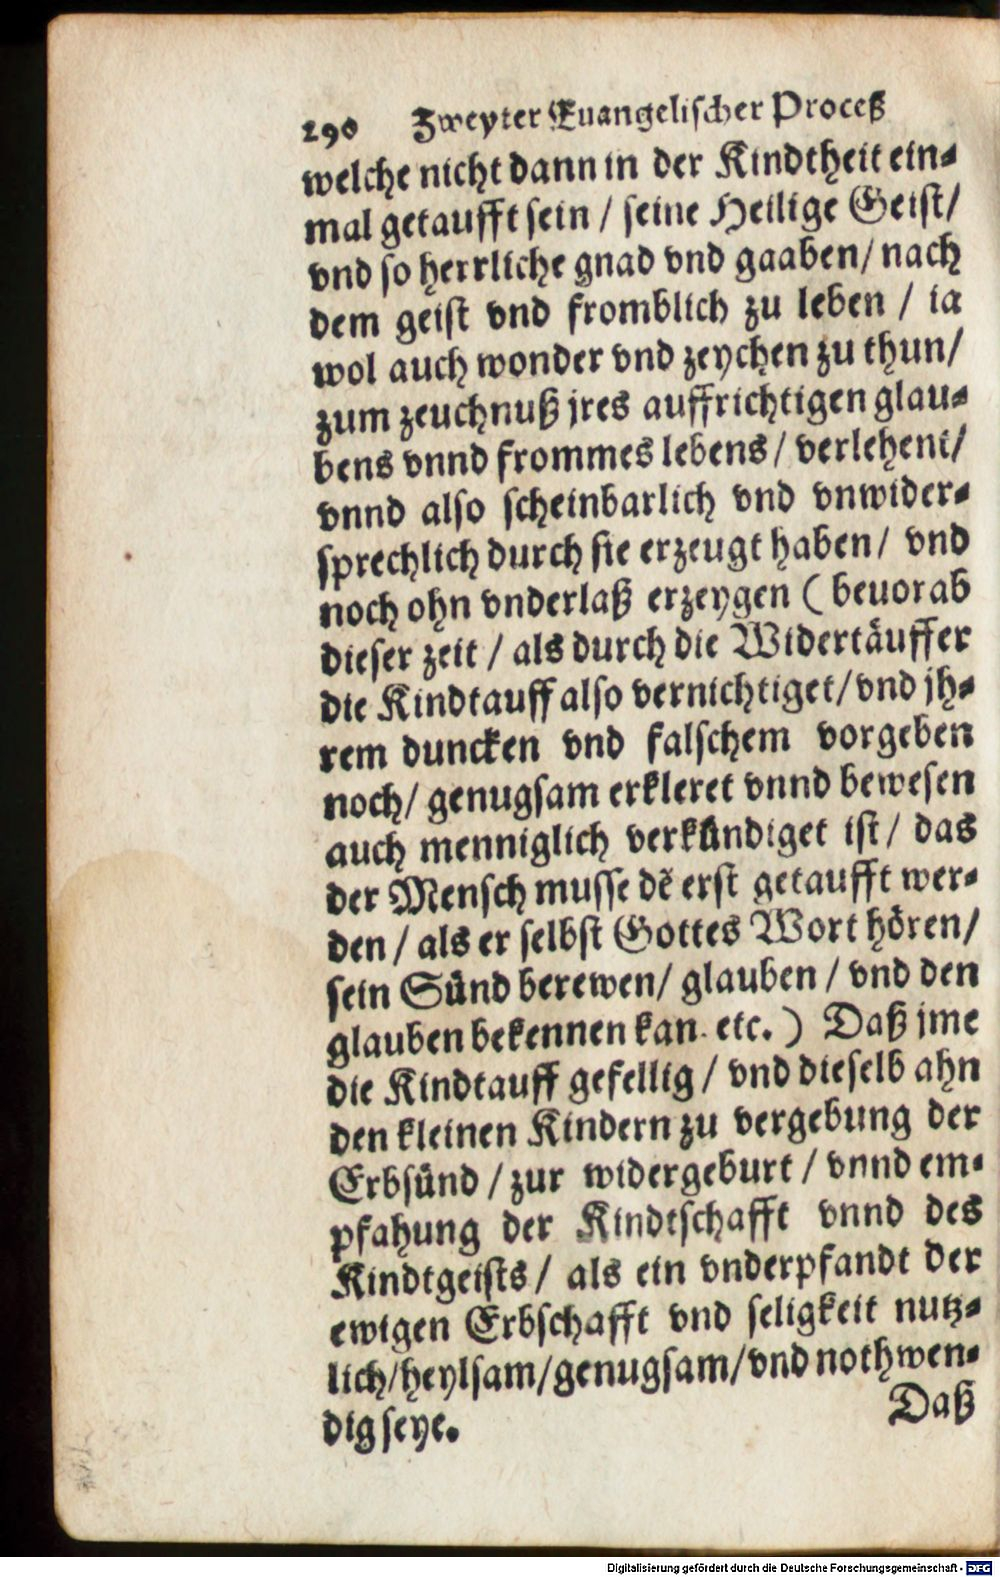 290 Zweyter Euangelischer Proceß
welche nicht dann in der Kindtheit ein-
mal getaufft sein / seine Heilige Geist/
vnd so herrliche gnad vnd gaaben/ nach
dem geist vnd fromblich zu leben / ia
wol auch wonder vnd zeychen zu thun/
zum zeuchnuß jres auffrichtigen glau-
bens vnnd frommes lebens/ verlehent/
vnnd also scheinbarlich vnd vnwider-
sprechlich durch sie erzeugt haben/ vnd
noch ohn vnderlaß erzeygen ( beuorab
dieser zeit / als durch die Widertäuffer
die Kindtauff also vernichtiget/vnd jh-
rem duncken vnd falschem vorgeben
noch/ genugsam erkleret vnnd bewesen
auch menniglich verkündiget ist/ das
der Mensch musse dẽ erst getaufft wer-
den / als er selbst Gottes Wort hören/
sein Sünd berewen/ glauben / vnd den
glauben bekennen kan. etc. ) Daß jme
die Kindtauff gefellig / vnd dieselb ahn
den kleinen Kindern zu vergebung der
Erbsünd / zur widergeburt / vnnd em-
pfahung der Kindtschafft vnnd des
Kindtgeists/ als ein vnderpfandt der
ewigen Erbschafft vnd seligkeit nutz-
lich/heylsam/genugsam/vnd nothwen-
dig seye.
Daß
Digitalisierung gefördert durch die Deutsche Forschungsgemeinschaft - DFG